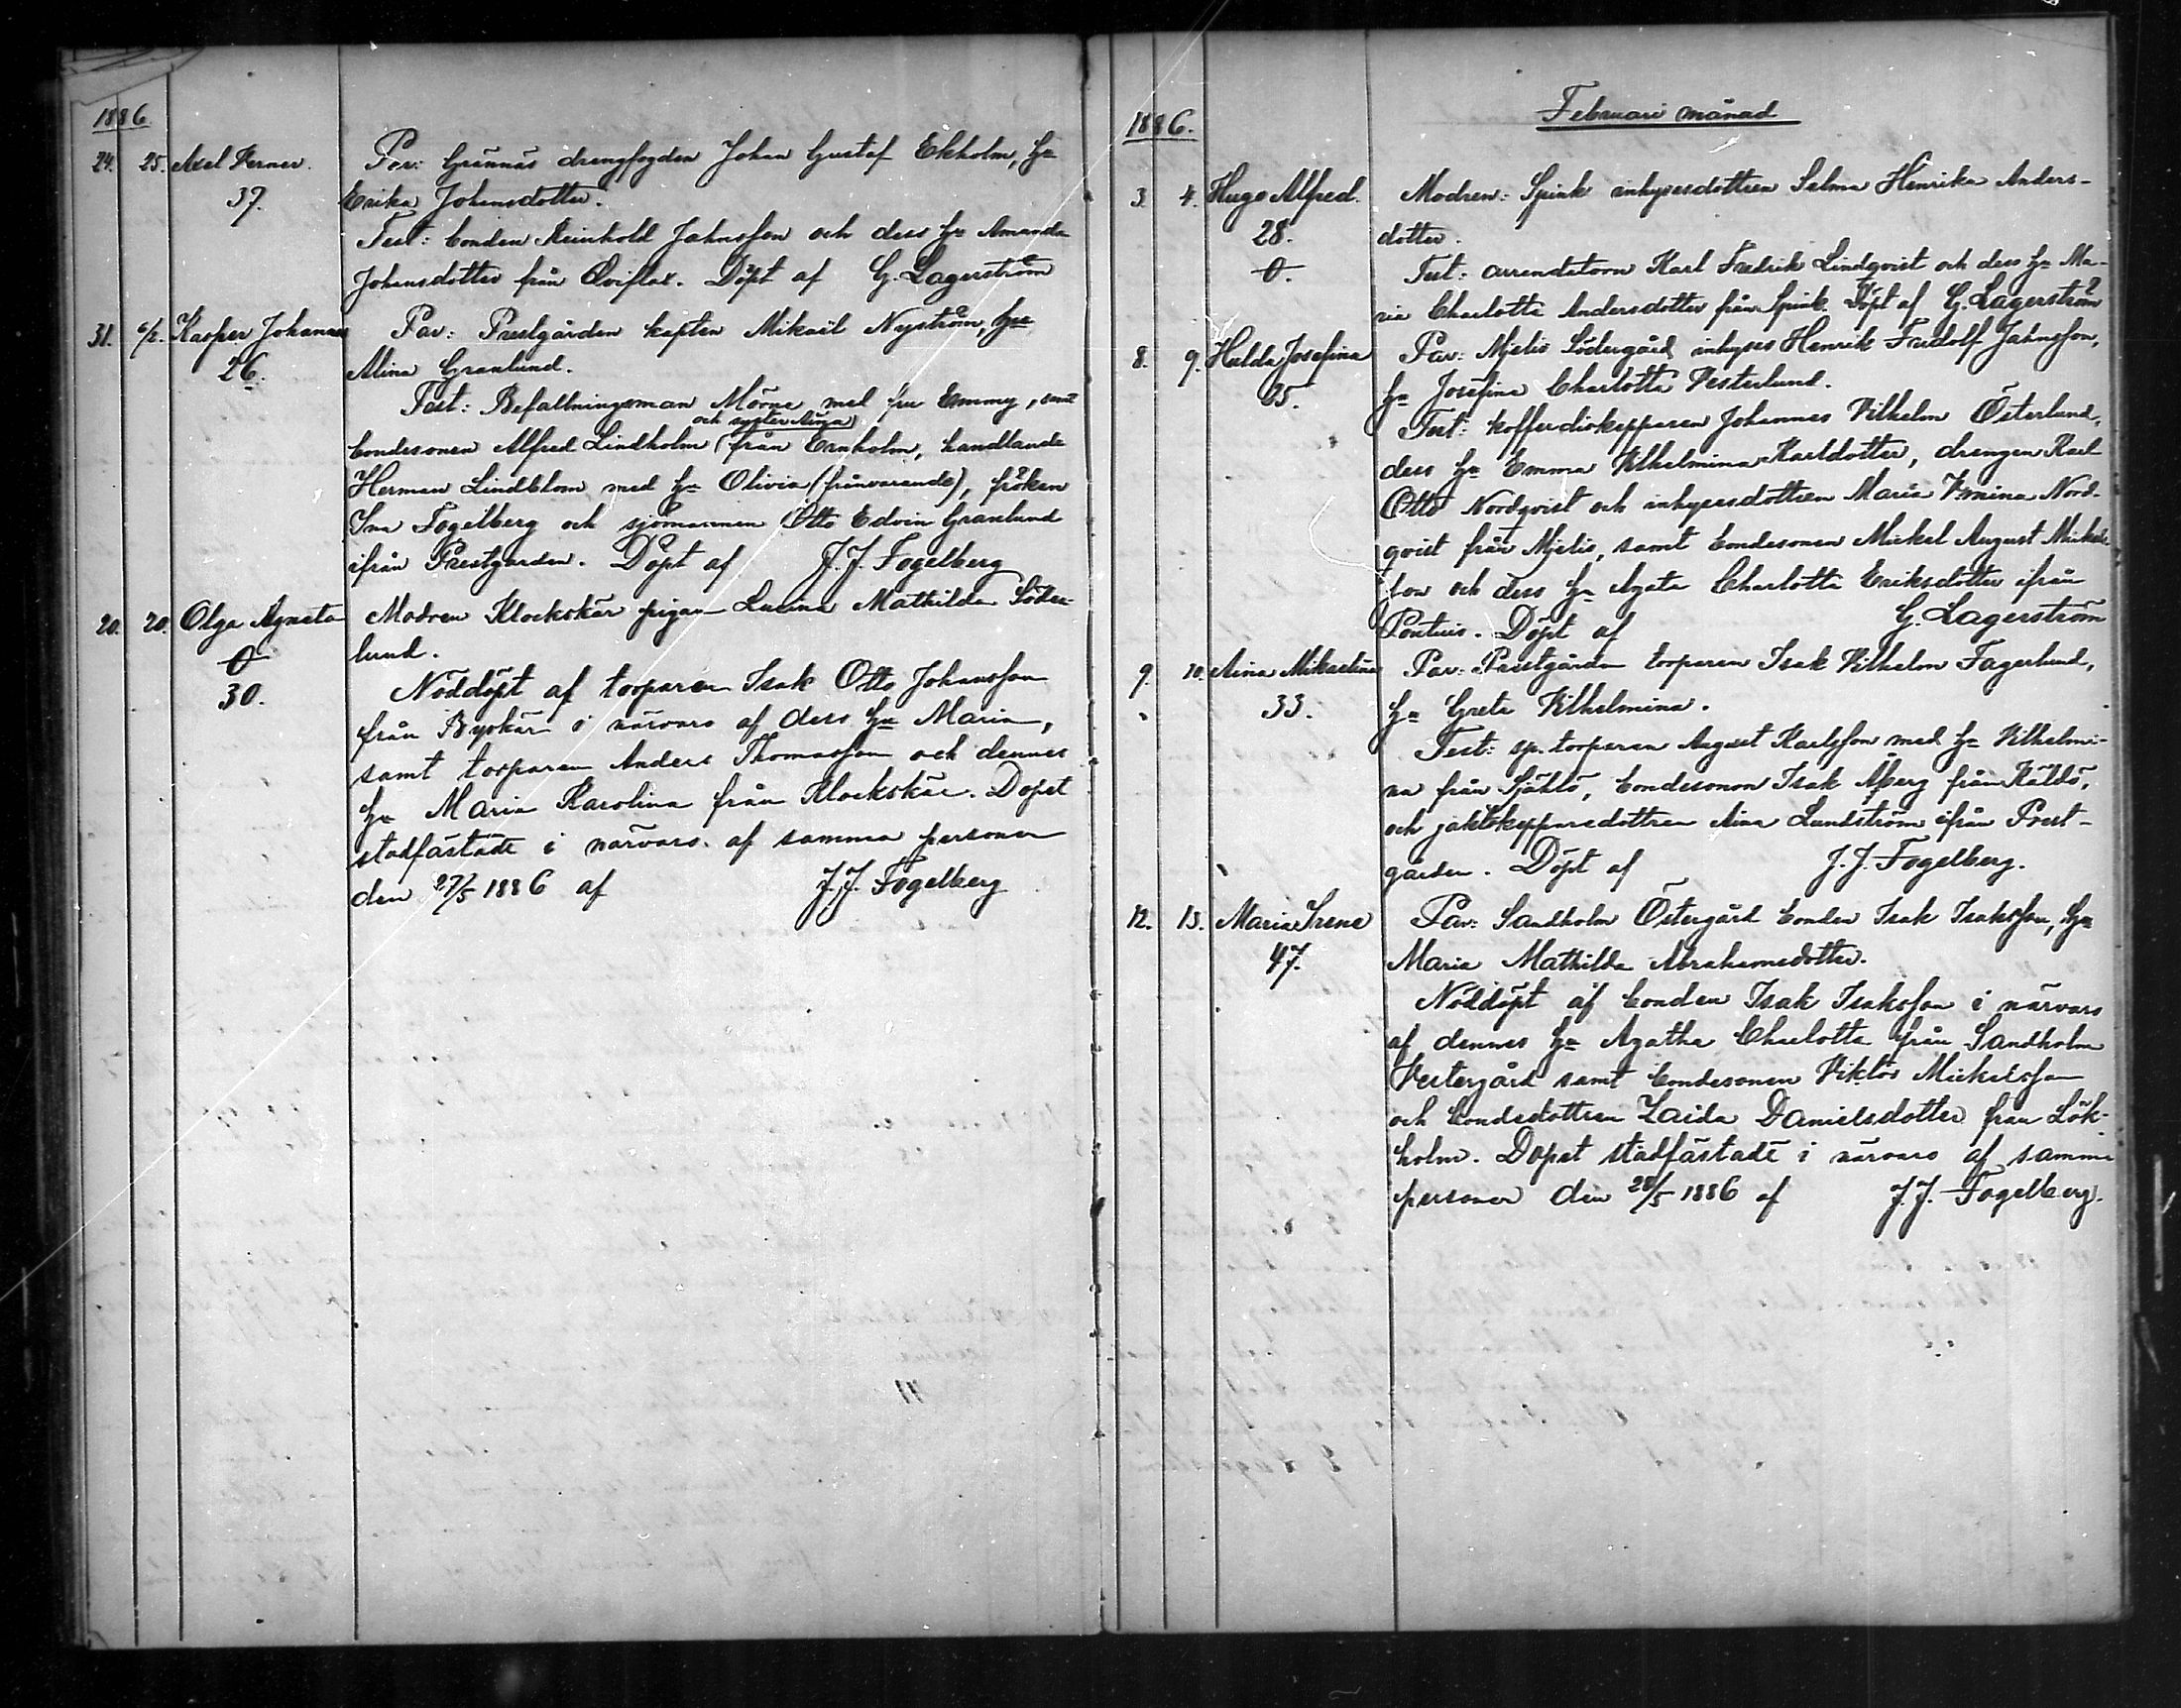 1886.
24. 25. Axel Verner. Par: Grännäs drengfogden Johan Gustaf Ekholm, h:u
37. Erika Johansdotter.
Test: bonden Reinhold Jahnsson och dess h:u Amanda
Johansdotter från Qviflax. Döpt af G. Lagerström
31. 6/2. Kasper Johannes Par: Prestgården kapten Mikael Nyström, h:u
26. Alina Granlund.
Test: Befallningsman Mörne med fru Emmy, samt
och syster Aina
bondesonen Alfred Lindholm från Ernholm, handlande
Herman Lindblom med h:u Olivia (frånvarande), fröken
Ina Fogelberg och sjömannen Otto Edvin Granlund
ifrån Prestgården. Döpt af J. J. Fogelberg
20. 20. Olga Agneta Modren Klockskär pigan Lusina Mathilda Söder-
0 lund.
30. Nöddöpt af torparen Isak Otto Johansson
från Byskär i närvaro af dess h:u Maria,
samt torparen Anders Thomasson och dennes
h:u Maria Karolina från Klockskär. Dopet
stadfästade i närvaro af samma personer
den 27/5 1886 af J. J. Fogelberg
1886. Februari månad
3. 4. Hugo Alfred. Modren: Spink inhysesdottren Selma Henrika Anders-
28. dotter.
0 Test: arrendatorn Karl Fredrik Lindqvist och dess h:u Ma-
ria Charlotta Andersdotter från Spink. Döpt af G. Lagerström
8. 9. Hulda Josefina Par: Mjelis Södergård inhyses Henrik Fridolf Jahnsson,
25. h:u Josefina Charlotta Vesterlund.
Test: kofferdiskepparen Johannes Vilhelm Österlund,
dess h:u Emma Vilhelmina Karldotter, drengen Karl
Otto Nordqvist och inhysesdottren Maria Irmina Nord-
qvist från Mjelis, samt bondesonen Mickel August Mickels-
son och dess h:u Agata Charlotta Eriksdotter ifrån
Pontuis. Döpt af G. Lagerström
9. 10. Aina Mikaelina Par: Prestgården torparen Isak Vilhelm Fagerlund,
33. h:u Greta Vilhelmina.
Test: sp. torparen August Karlsson med h:u Vilhelmi-
na från Själö, bondesonen Isak Åberg från Käldö,
och jaktskepparedottren Aina Lundström ifrån Prest-
gården. Döpt af J. J. Fogelberg.
12. 13. Maria Irene Par: Sandholm Östergård bonden Isak Isaksson, h:u
47. Maria Mathilda Abrahamsdotter.
Nöddöpt af bonden Isak Isaksson i närvaro
af dennes h:u Agatha Charlotta från Sandholm
Vestergård samt bondesonen Viktor Mickelsson
och bondedottren Zaida Danielsdotter från Lök-
holm. Dopet stadfästade i närvaro af samma
personer den 28/5 1886 af J. J. Fogelberg.